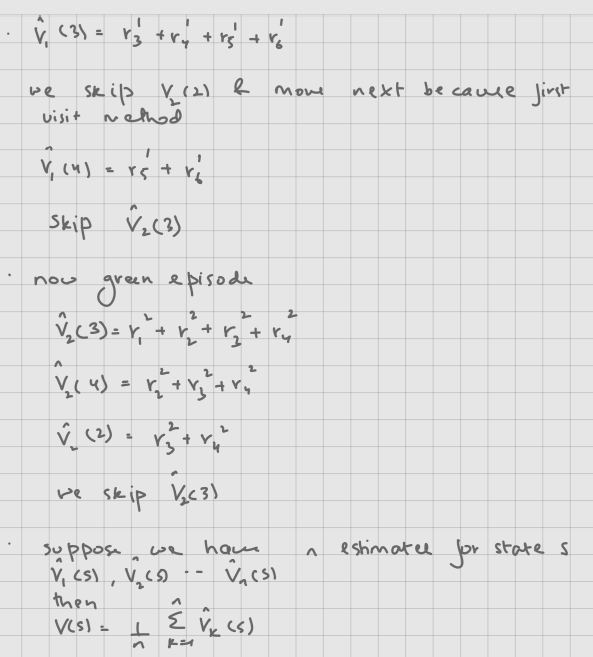 · V̂₁(3) = r₃¹ + r₄¹ + r₅¹ + r₆¹
we skip V̂₂(2) & move next because first
visit method
V̂₁(4) = r₅¹ + r₆¹
skip V̂₂(3)
· now green episode
V̂₂(3) = r₁² + r₂² + r₃² + r₄²
V̂₂(4) = r₂² + r₃² + r₄²
V̂₂(2) = r₃² + r₄²
we skip V̂₂(3)
· suppose we have n estimates for state s
V̂₁(s), V̂₂(s) -- V̂ₙ(s)
then
V(s) = 1/n Σₖ₌₁ⁿ V̂ₖ(s)